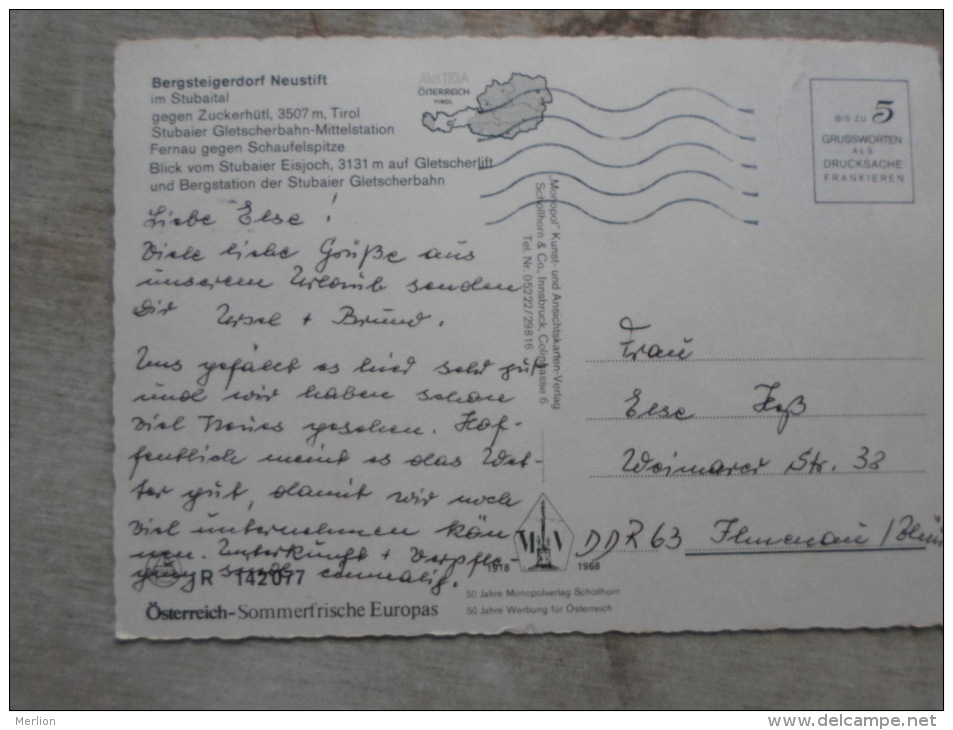 Bergsteigerdorf Neustift
im Stubaital
gegen Zuckerhütl, 3507 m, Tirol
Stubaier Gletscherbahn-Mittelstation
Fernau gegen Schaufelspitze
Blick vom Stubaier Eisjoch, 3131 m auf Gletscherlift
und Bergstation der Stubaier Gletscherbahn
AUSTRIA
ÖSTERREICH
TIROL
BIS ZU 5
GRUSSWORTEN
ALS
DRUCKSACHE
FRANKIEREN
Liebe Else!
Viele liebe Grüße aus
unserem Urlaub senden
Dir Ursel + Bruno.
Uns gefällt es hier sehr gut
und wir haben schon
viel Neues gesehen. Hof-
fentlich meint es das Wet-
ter gut, damit wir noch
viel unternehmen kön-
nen. Unterkunft + Verpfle-
gung einmalig.
R 142077
Österreich-Sommerfrische Europas
„Monopol" Kunst- und Ansichtskarten-Verlag
Schöllhorn & Co., Innsbruck, Colingasse 6
Tel. Nr. 05222/29816
M V
1918 - 1968
50 Jahre Monopolverlag Schöllhorn
50 Jahre Werbung für Österreich
Frau
Else Heß
Weimarer Str. 38
DDR 63 Ilmenau /Thür
Merlion
http://www.delcampe.net